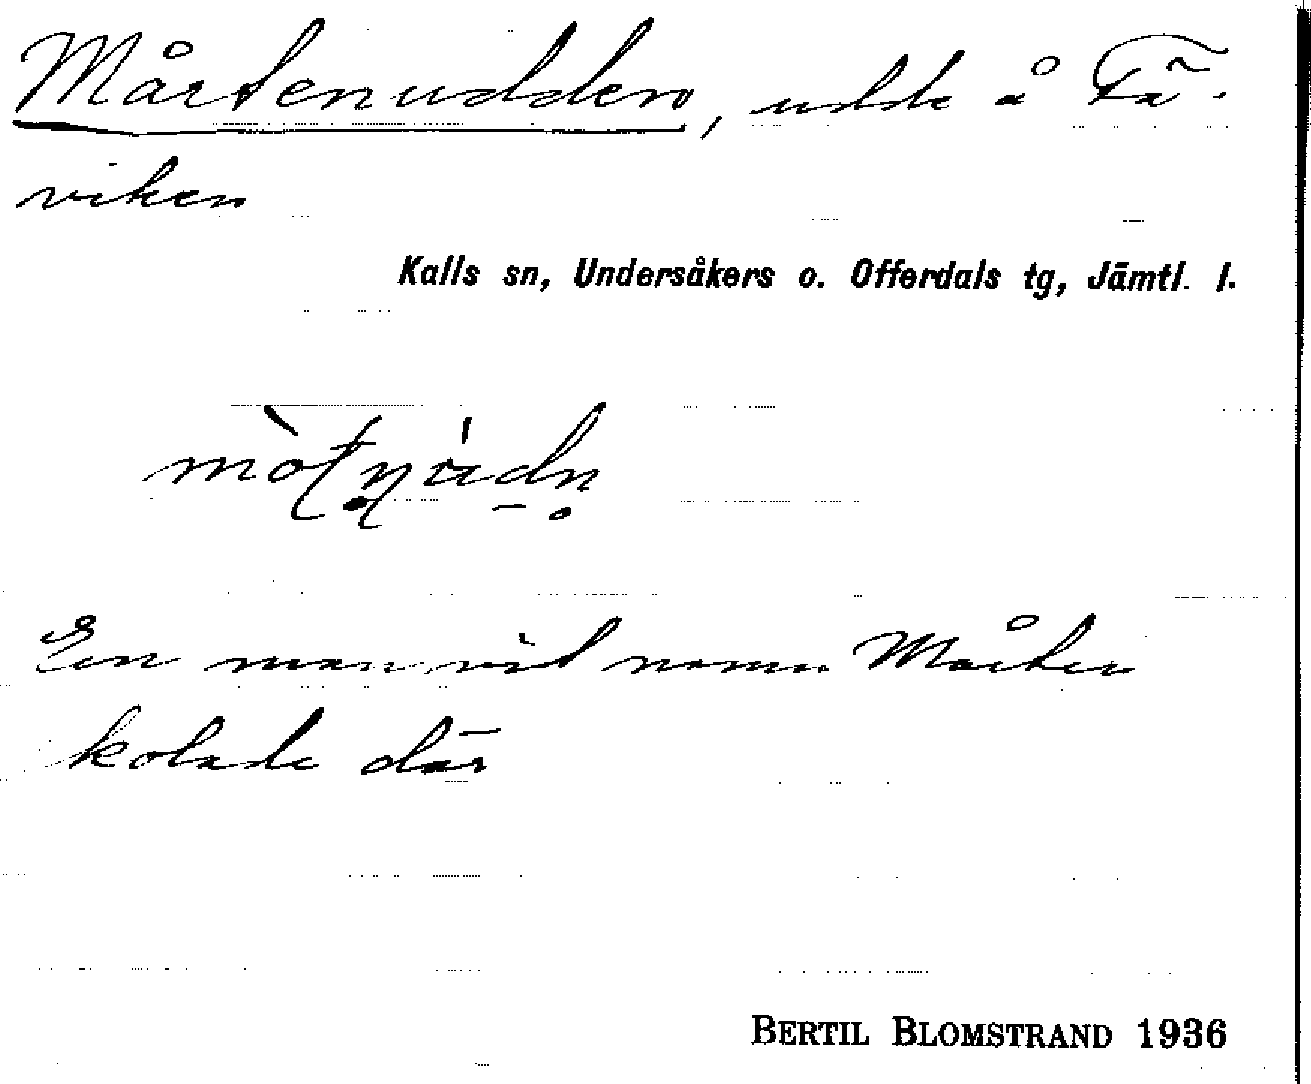 Mårtenudden, udde å Fä-
viken
Kalls sn, Undersåkers o. Offerdals tg, Jämtl. l.
En man vid namn Mårten
kolade där
BERTIL BLOMSTRAND 1936